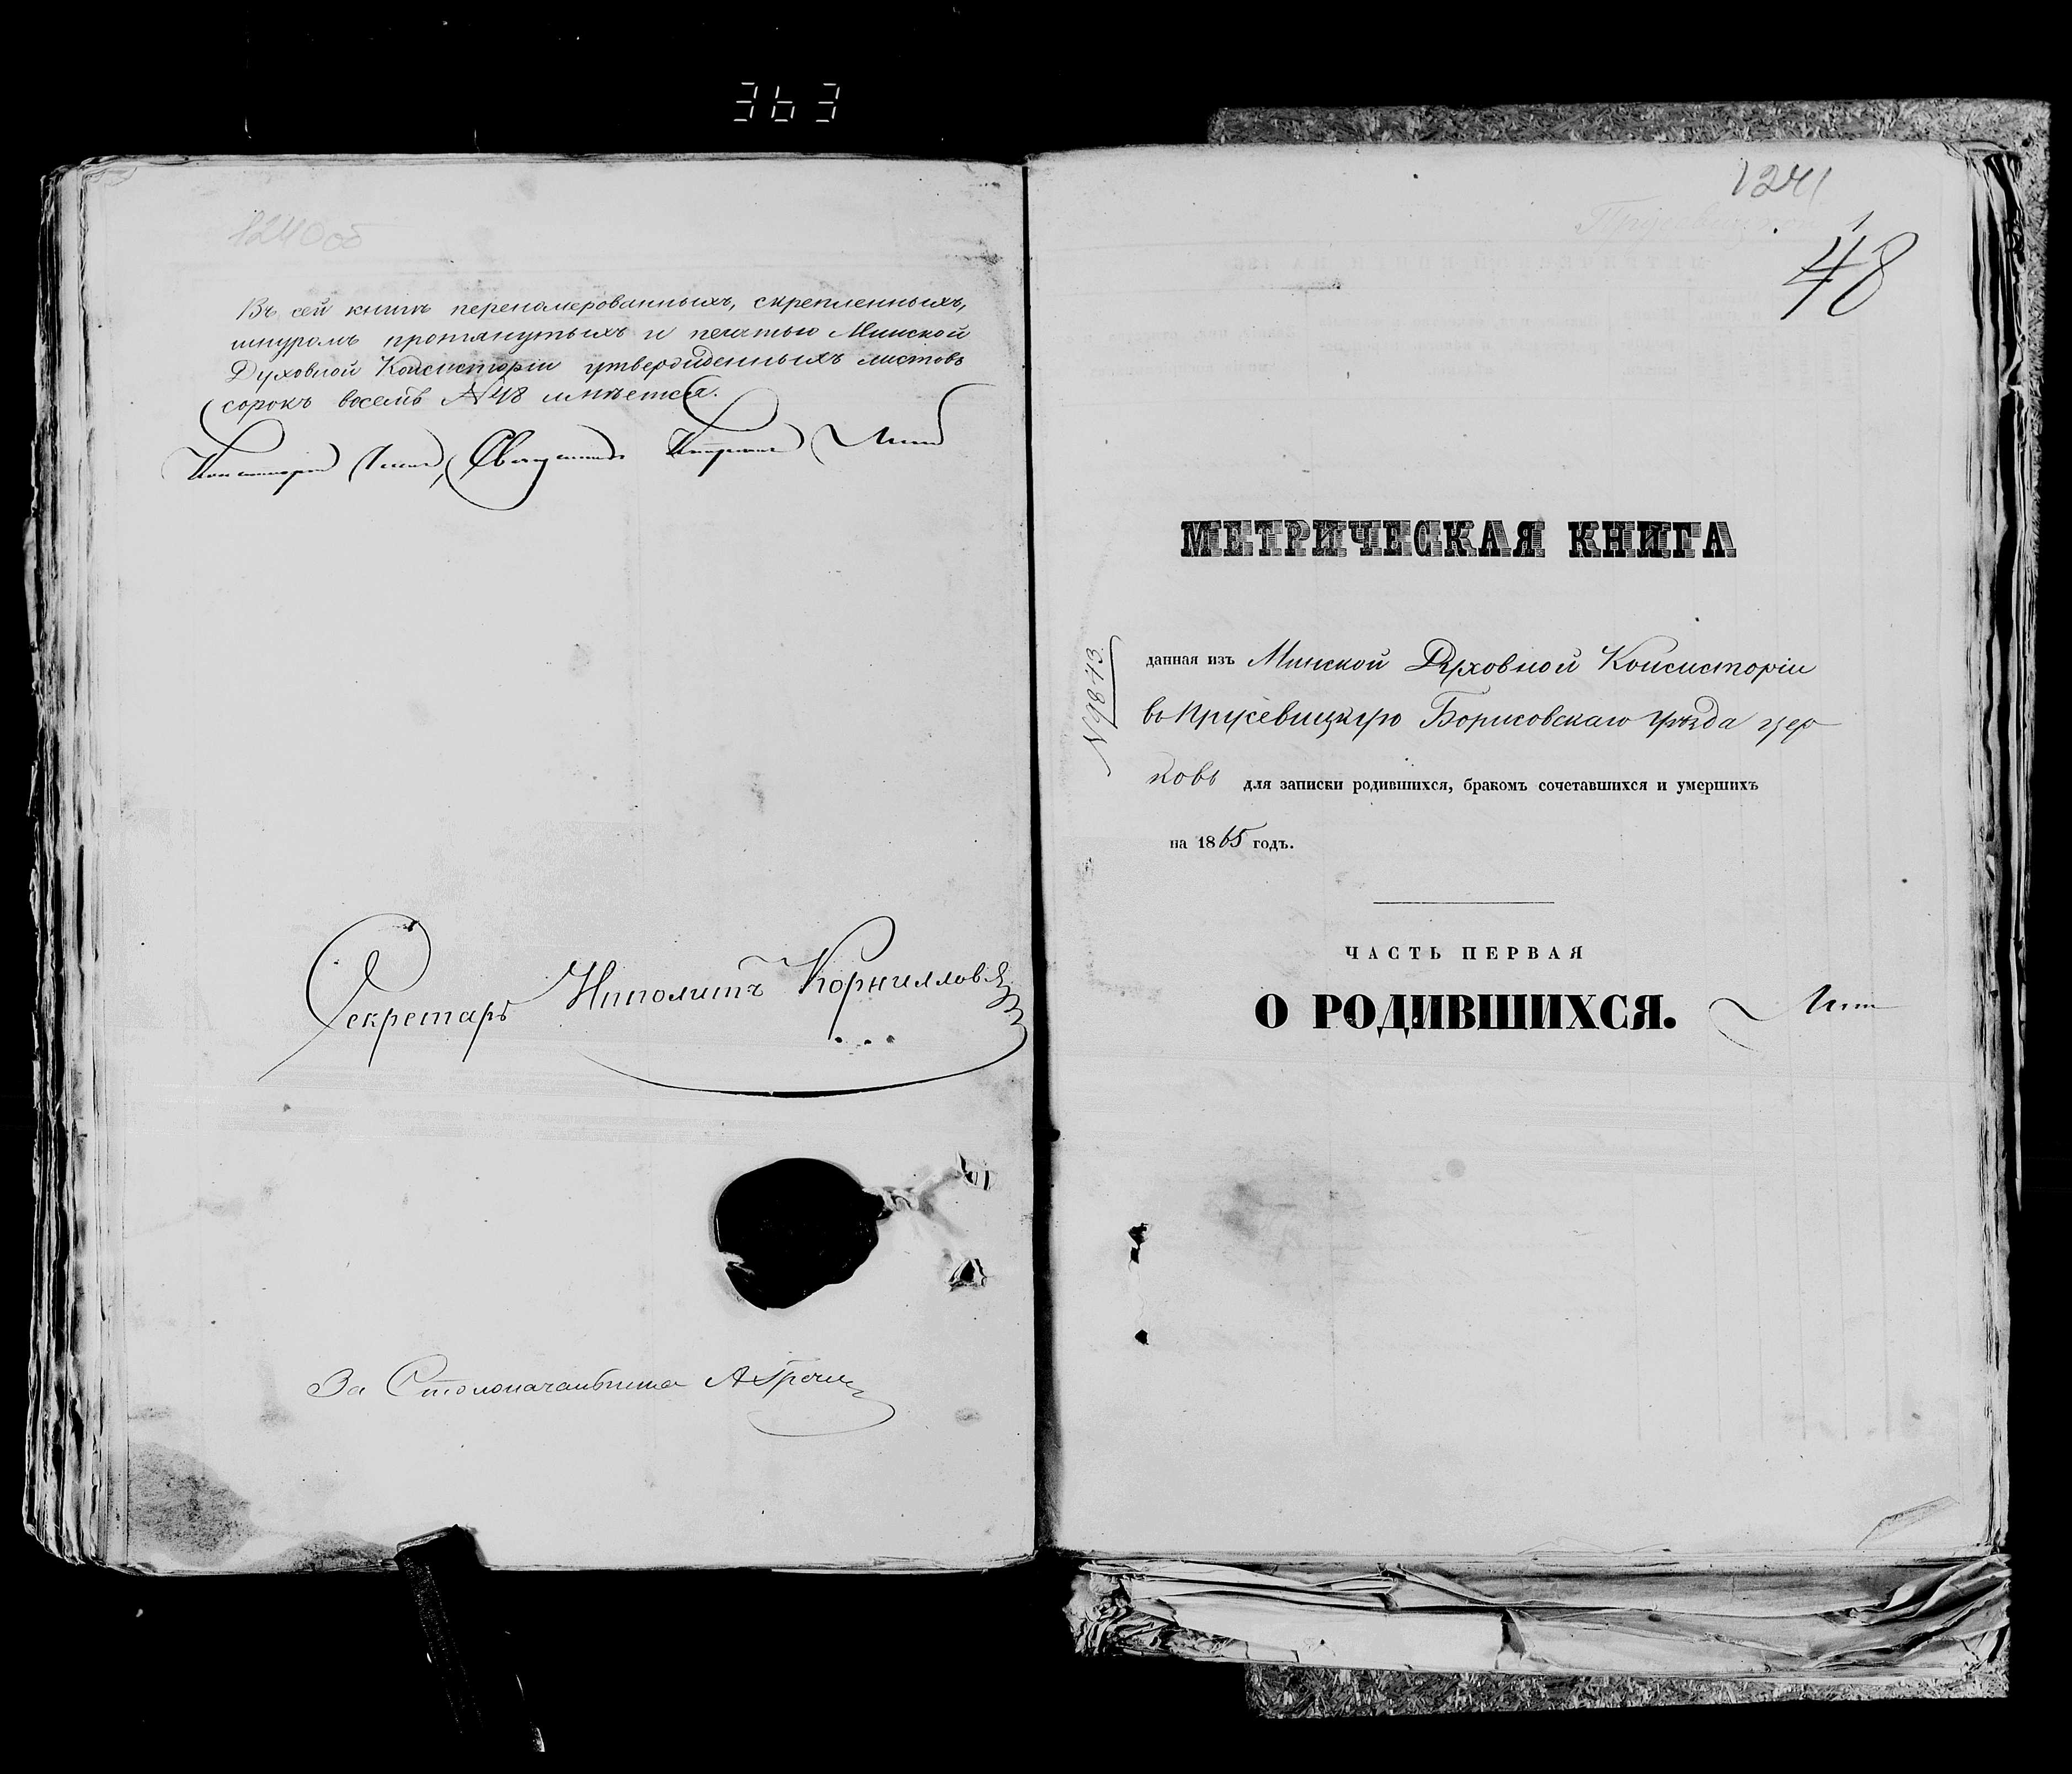 363
1240 об
Въ сей книгѣ переномерованныхъ, скрепленныхъ,
шнуромъ протянутыхъ и печатью Минской
Духовной Консисторіи утвержденныхъ листовъ
сорокъ восемь №48 имѣется.
Секретарь Иполитъ Корнилловъ
За Столоначальника
1241
1
48
МЕТРИЧЕСКАЯ КНИГА
№9843
данная изъ Минской Духовной Консисторіи
въ Прусевицкую Борисовскаго уѣзда цер
ковь для записки родившихся, бракомъ сочетавшихся и умершихъ
на 1865 годъ.
ЧАСТЬ ПЕРВАЯ
О РОДИВШИХСЯ.